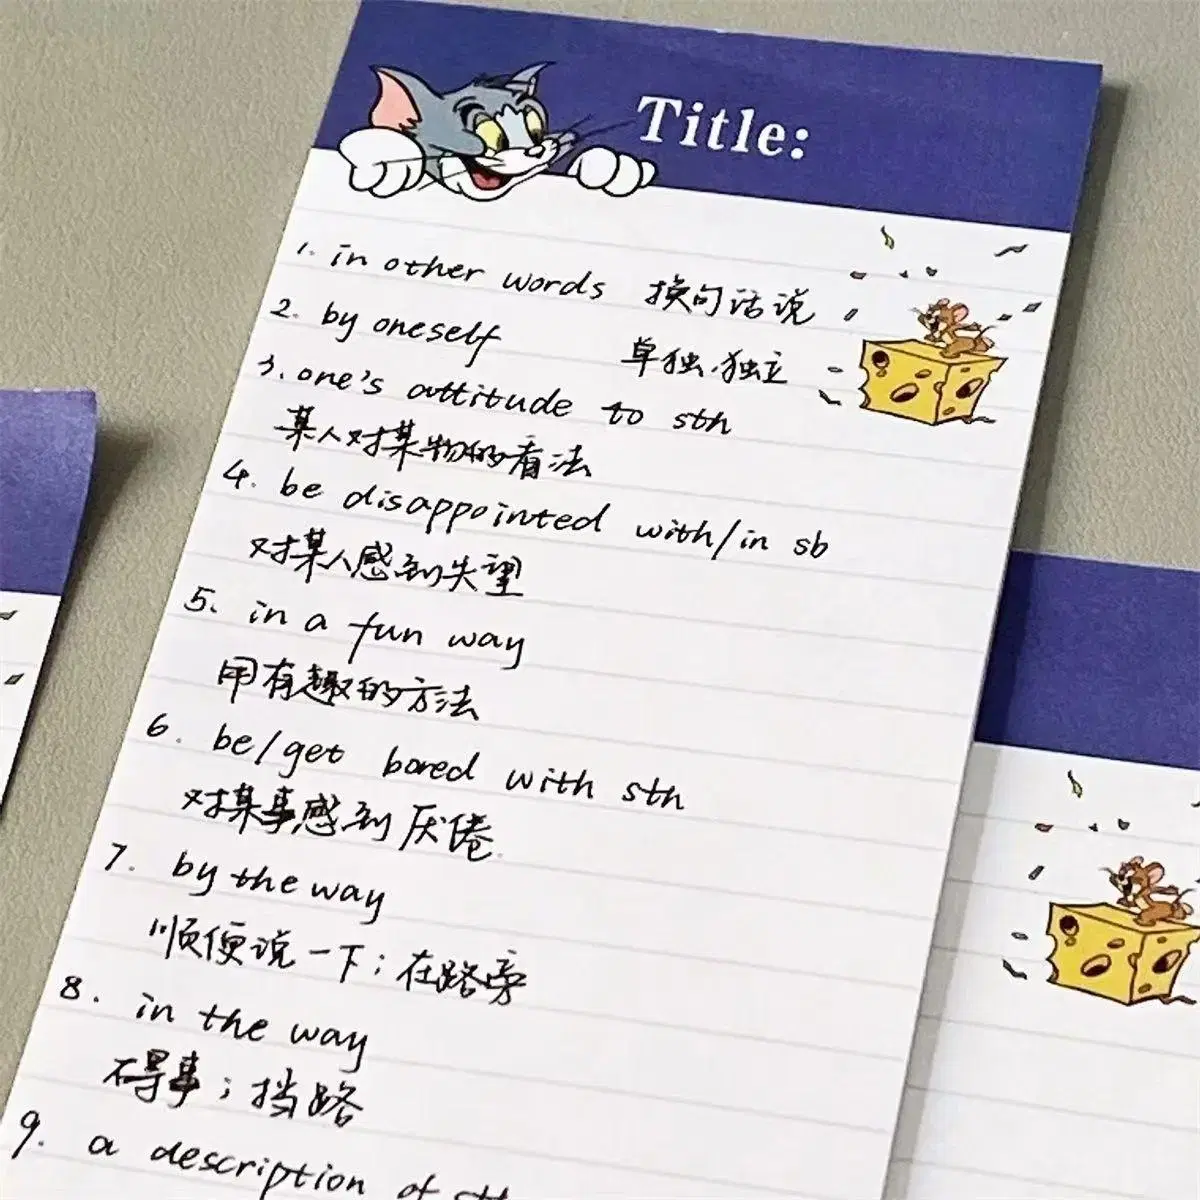 Title:
1. in other words 换句话说
2. by oneself 单独.独立
3. one's attitude to sth
某人对某物的看法
4. be disappointed with/in sb
对某人感到失望
5. in a fun way
用有趣的方法
6. be/get bored with sth
对某事感到厌倦.
7. by the way
顺便说一下；在路旁
8. in the way
碍事；挡路
9. a description of sth